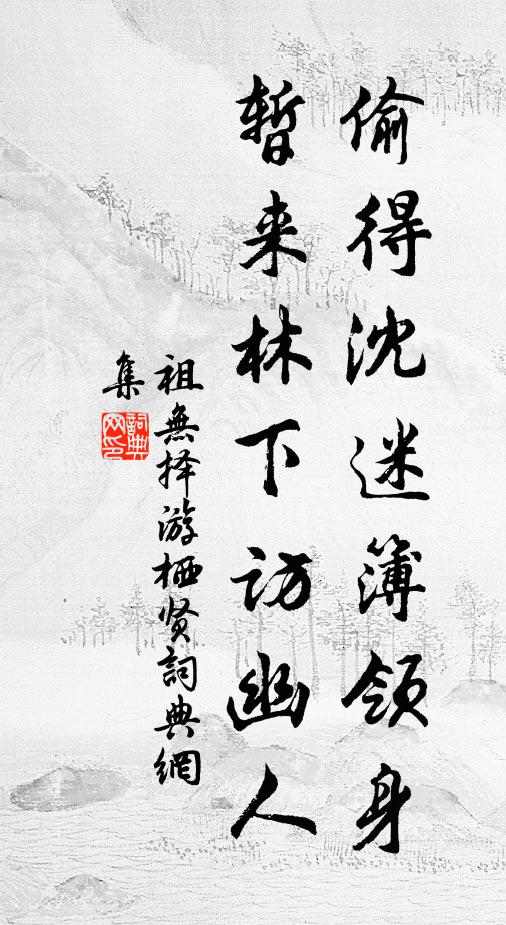 偷得沈迷簿领身
暂来林下访幽人
祖無择游栖贤詞典網
集
詞典网印